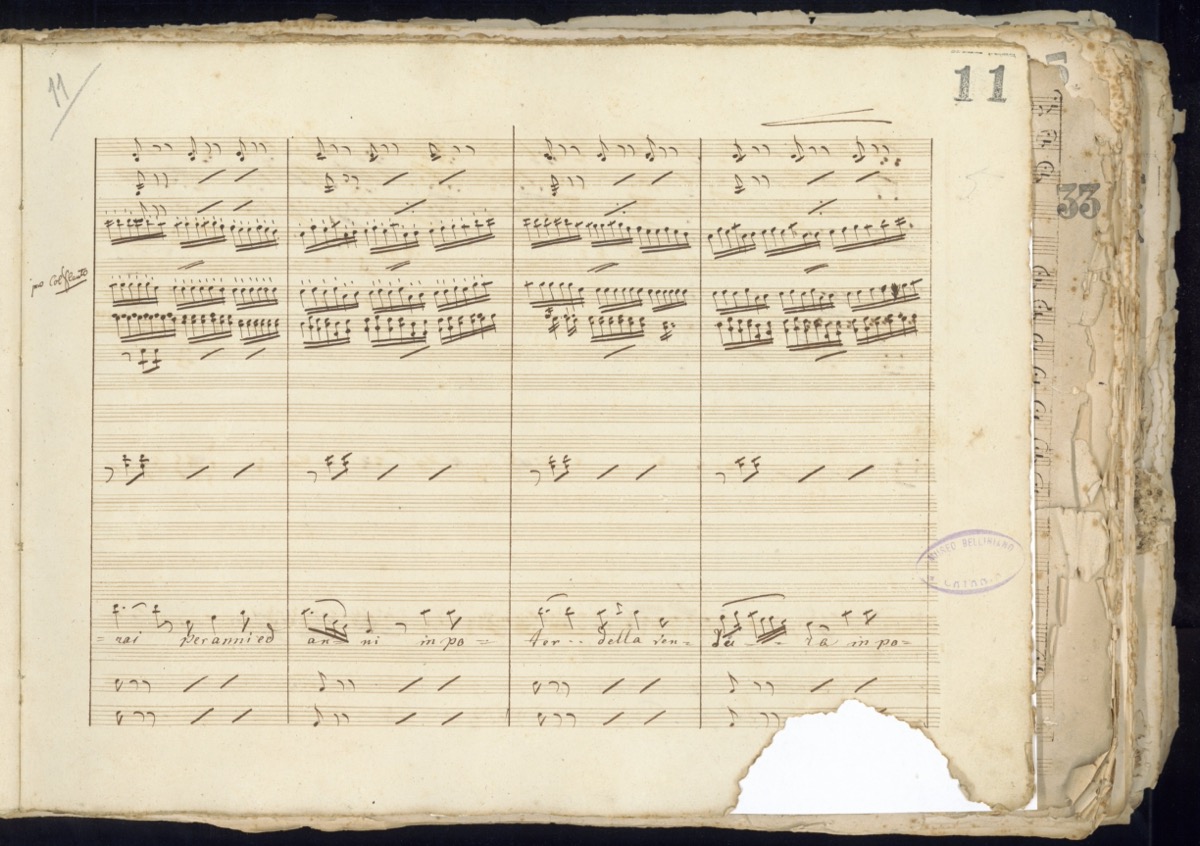 11
11
33
= rai per anni ed an = ni in po = ter - - della ven = du - - ta in po =
MUSEO BELLINIANO